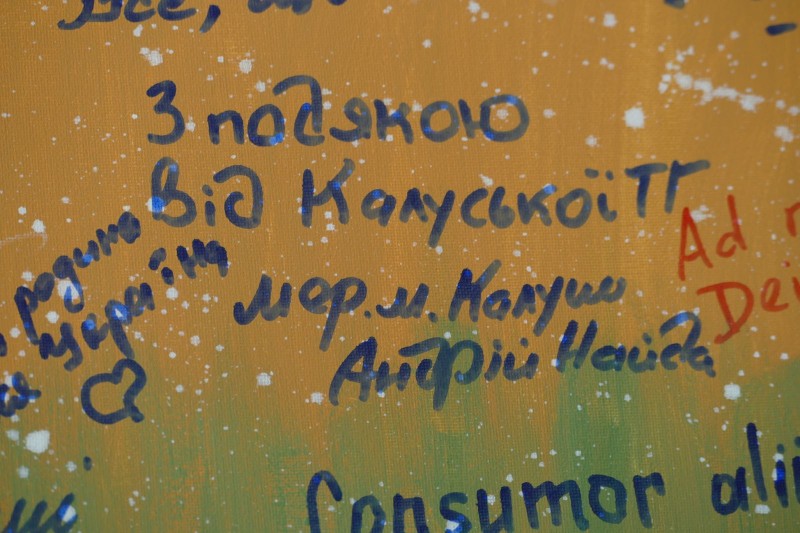 Все,
З подякою
від Калуської ТГ
мер. м. Калуш
Андрій Найда
родина
україна
Ad
Dei
Consumor alii